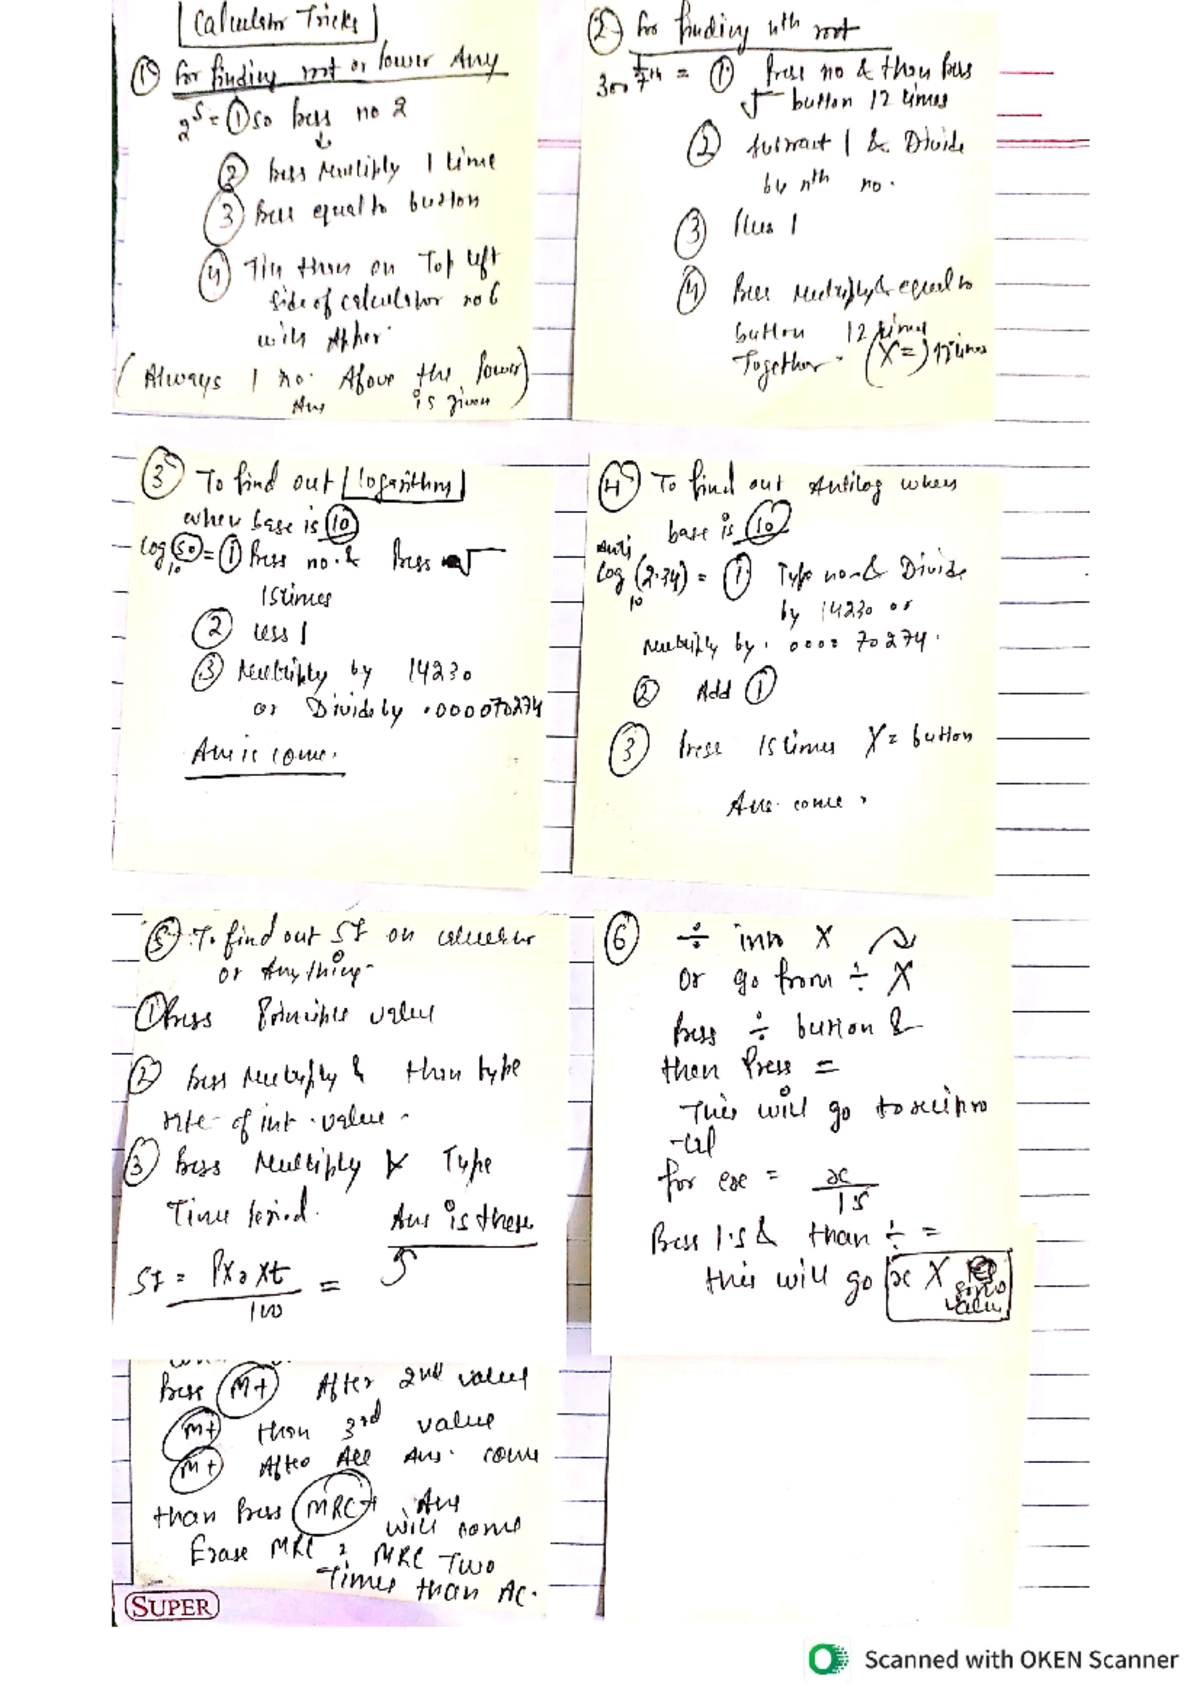 Calculator Tricks
① For finding root or power Any
2⁵ = ① so Press no 2
② Press Multiply 1 time
③ Press equal to button
④ Till then on Top left
side of calculator no 6
with Appear
(Always 1 no. Above the power)
Ans is given
② for finding nth root
300 1/7th = ① Press no & then Press
√ button 12 times
② Subtract 1 & Divide
by nth no.
③ Plus 1
④ Press Multiply & equal to
button 12 times
Together (X=) 12 times
③ To find out logarithms
when base is 10
log₁₀ 50 = ① Press no. & Press √
15 times
② Less 1
③ Multiply by 14230
or Divide by .000070274
Ans is come.
④ To find out Antilog when
base is 10
Anti
log₁₀ (2.34) = ① Type no & Divide
by 14230 or
Multiply by . 0000 70274.
② Add ①
③ Press 15 times X= button
Ans. come.
⑤ To find out SI on calculator
or Anything
① Press Principle value
② Press Multiply & than type
rate of int. value
③ Press Multiply & Type
Time period. Ans is there
SI = PxrXt =
100
⑥ ÷ into X
Or go from ÷ X
Press ÷ button &
then Press =
This will go to recipro
-cal
for exe = x/1.5
Press 1.5 & than ÷ =
this will go x X
value
Press M+ After 2nd value
M+ than 3rd value
M+ After All Ans. come
than Press MRC Ans
will come
Erase MRC = MRC Two
Times than AC.
SUPER
Scanned with OKEN Scanner